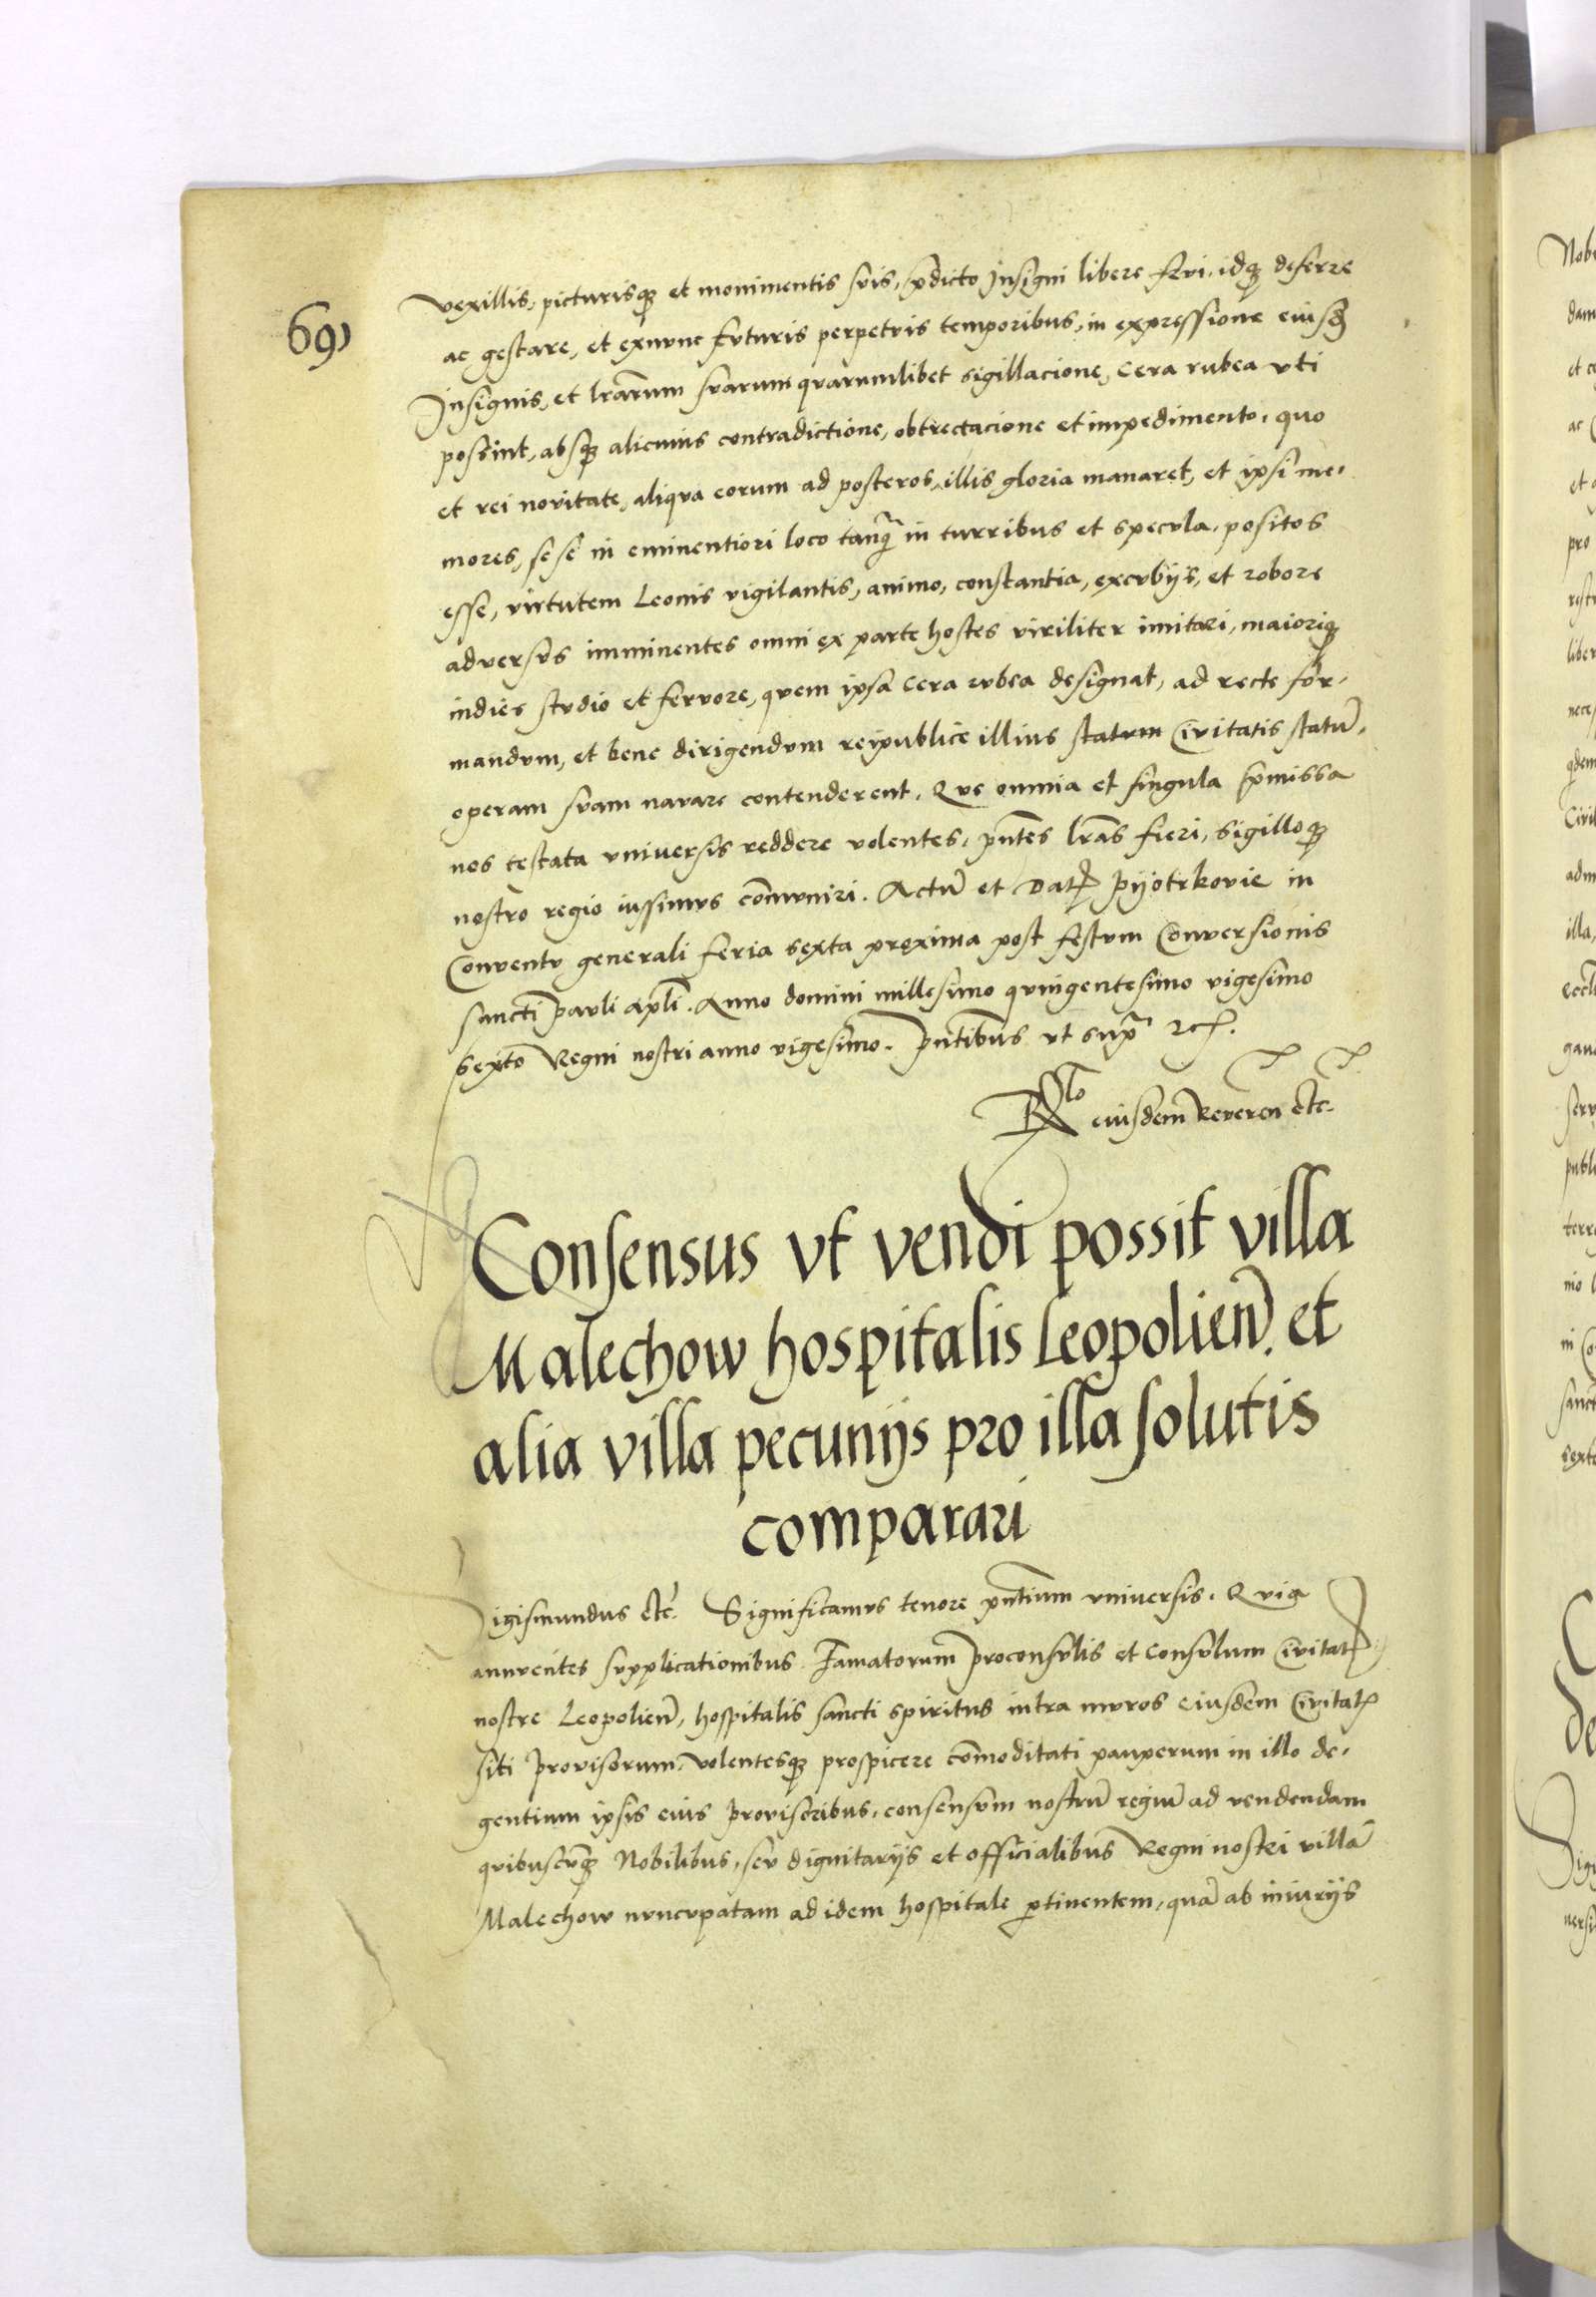 69)
vexillis, picturisqꝫ et monimentis suis, p̄dicto Insigni libere frui, idqꝫ deferre
ac gestare, et exnunc futuris perpetuis temporibus, in expressione eiusđ
Insignis, et lr̄arum suarum quarumlibet sigillacione, Cera rubea uti
possint, absqꝫ alicuius contradictione, obtrectacione et impedimento, quo
et rei novitate, aliqua eorum ad posteros, illis gloria manaret, et ipsi me-
mores, sese in eminentiori loco tanq̄ in turribus et specula, positos
esse, virtutem Leonis vigilantis, animo, constantia, excubijs, et robore
adversus imminentes omni ex parte hostes viriliter imitari, maioriqꝫ
indies studio et fervore, quem ipsa Cera rubea designat, ad recte for-
mandum, et bene dirigendum reipublice illius statum Civitatis statū,
operam suam navare contenderent. Que omnia et singula p̄missa
nos testata universis reddere volentes, pn̄tes lr̄as fieri, sigilloqꝫ
nostro regio iussimus com̄uniri. Actū et Datꝭ Pijotrkovie in
Conventu generali feria sexta proxima post festum Conversionis
sancti Pauli apl̄i. Anno domini millesimo quingentesimo vigesimo
sexto Regni nostri anno vigesimo. Pn̄tibus ut supᵃ ⁊cꝭ.
Rlo eiusdem Reveren etc̄.
Consensus vt vendi possit villa
Malechow hospitalis Leopolien̄. et
alia villa pecunijs pro illa solutis
comparari
Sigismundus etc̄. Significamus tenore pn̄tium universis. Quia
annuentes supplicationibus Famatorum Proconsulis et Consulum Civitatꝭ
nostre Leopolien̄, hospitalis sancti spiritus intra muros eiusdem Civitatꝭ
siti Provisorum, volentesqꝫ prospicere com̄oditati pauperum in illo de-
gentium ipsis eius Provisoribus, consensum nostrū regiū ad vendendam
quibuscunqꝫ Nobilibus, seu dignitarijs et officialibus Regni nostri villā
Malechow nuncupatam ad idem hospitale ꝑtinentem, quā ab iniurijs